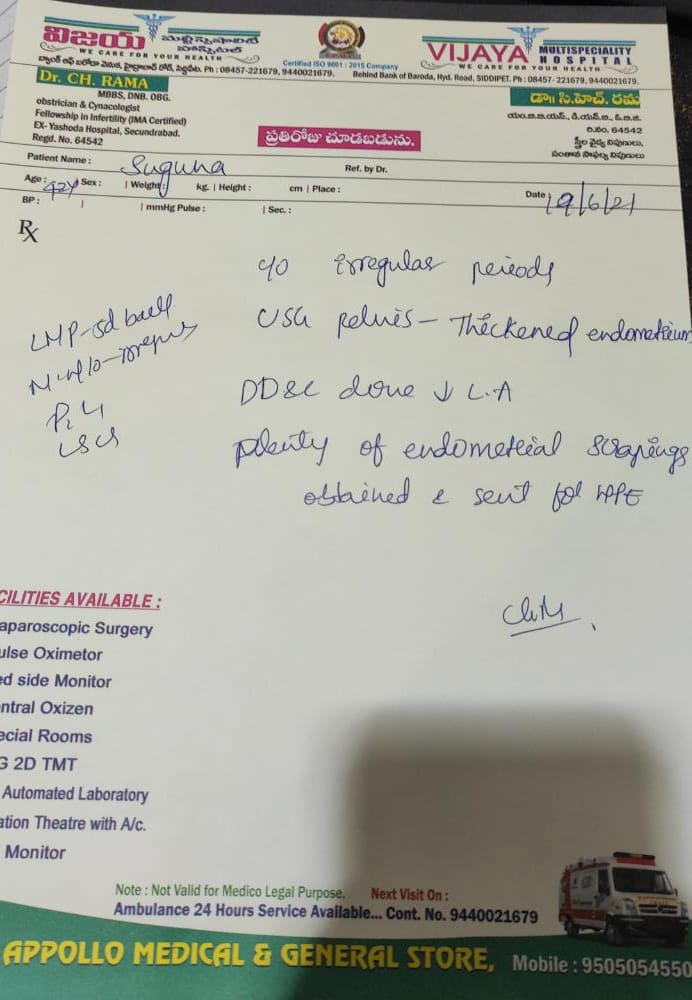 విజయ మల్టీస్పెషాలిటీ హాస్పిటల్
WE CARE FOR YOUR HEALTH
Certified ISO 9001 : 2015 Company
VIJAYA MULTISPECIALITY HOSPITAL
WE CARE FOR YOUR HEALTH
Ph : 08457-221679, 9440021679.
Behind Bank of Baroda, Hyd. Road, SIDDIPET. Ph : 08457- 221679, 9440021679.
Dr. CH. RAMA
MBBS, DNB. OBG.
obstrician & Cynacologist
Fellowship in Infertility (IMA Certified)
EX- Yashoda Hospital, Secundrabad.
Regd. No. 64542
ప్రతిరోజు చూడబడును.
డా॥ సి.హెచ్. రమ
ఎం.బి.బి.యస్., డి.యన్.బి., ఓ.బి.జి.
రి.నం. 64542
స్త్రీల వైద్య నిపుణులు,
సంతాన సాఫల్య నిపుణులు
Patient Name : Suguna Ref. by Dr.
Age : 42y Sex : | Weight : kg. | Height : cm | Place : Date 19/6/21
BP : | | mmHg Pulse : | Sec. :
Rx
c/o irregular periods
USG pelvis - Thickened endometrium
LMP-5d back
DD&C done ↓ L.A
P2L1
LSCS
plenty of endometrial scrapings
obtained & sent for HPE
CILITIES AVAILABLE :
aparoscopic Surgery
ulse Oximetor
ed side Monitor
ntral Oxizen
ecial Rooms
G 2D TMT
Automated Laboratory
ation Theatre with A/c.
Monitor
Note : Not Valid for Medico Legal Purpose. Next Visit On :
Ambulance 24 Hours Service Available... Cont. No. 9440021679
APPOLLO MEDICAL & GENERAL STORE, Mobile : 9505054550